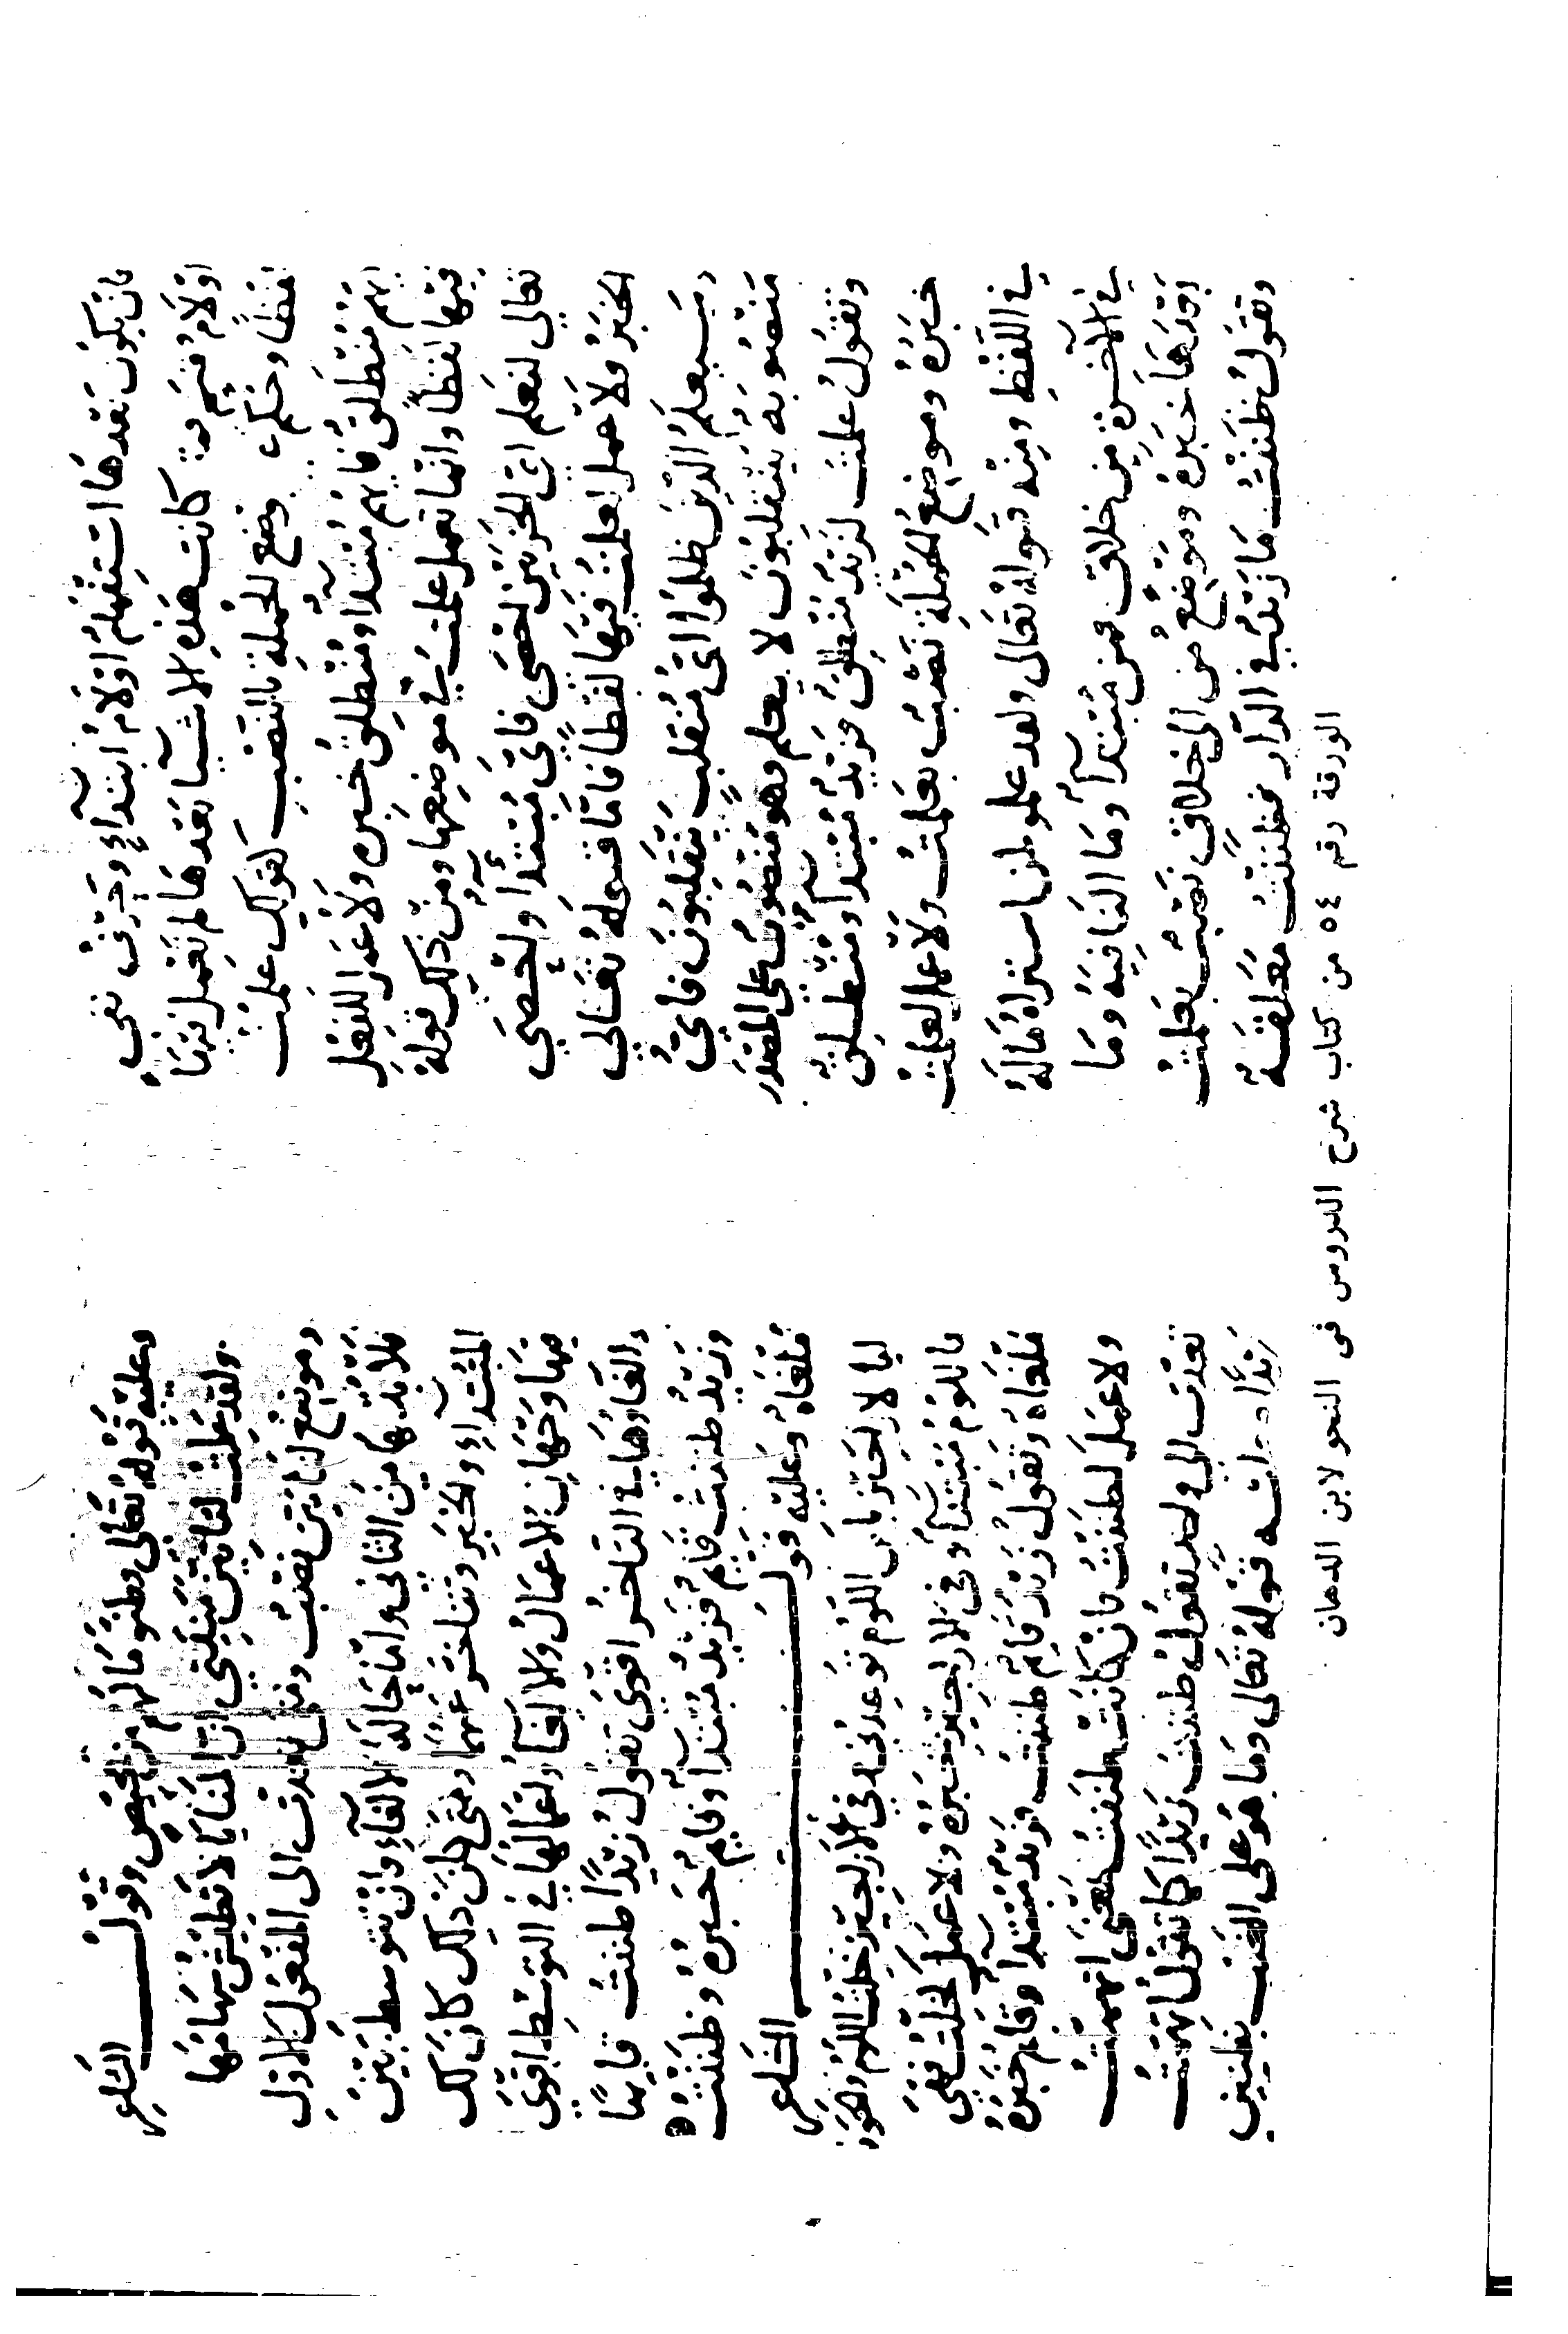 فان يكون بعدها استفهام او لام ابتداء وحرف نفي
او لام قسم فمتى كانت هذه الاشيا بعدها لم تعمل فيها
لفظا وحكم على موضع الجملة بالنصب كقولك علمت
ايهم منطلق فايهم مبتدأ ومنطلق خبره ولا عمل للفعل
فيهما لفظا وانما تعمل علمت في موضعهما ومن ذلك قوله
تعالى لنعلم اي الحزبين احصى فاي مبتدأ واحصى
الخبر ولا عمل لعلمت فيهما لفظا فاما قوله تعالى
وسيعلم الذين ظلموا اي منقلب ينقلبون فاي
منصوبة بينقلبون لا بيعلم وهو منصوب على المصدر
وتقول علمت لزيد منطلق فزيد مبتدأ ومنطلق
خبره وموضع الجملة نصب بعلمت ولا عمل لعلمت
في اللفظ ومنه قوله تعالى ولقد علموا لمن اشتراه ماله
في الآخرة من خلاق فمن مبتدأ وما النافية وما
بعدها خبره وموضع من الى خلاق نصب بعلمت
وتقول ظننت ما زيد في الدار فظننت معلقة
وعليه قوله تعالى وظنوا ما لهم من محيص وقول الشاعر
ولقد علمت لتأتين منيتي ان المنايا لا تطيش سهامها
وموضع لتأتين نصب ومتى تعدت الى المفعول الاول
فلا بد لها من الثاني واما حالة الالغاء فان تتوسط بين
المبتدإ والخبر وتتأخر عنهما ومتى كان ذلك كان لك
فيها وجهان الاعمال والالغاء واعمالها في التوسط اقوى
والغاؤها في التاخر اقوى تقول زيدا ظننت قايما
وزيد ظننت قايم فزيد مبتدأ وقايم خبره وظننت
ملغاة وعليه قول الشاعر
ابا لاراجيز يابن اللوم توعدني وفي الاراجيز خلت اللوم والخور
فاللوم مبتدأ وفي الاراجيز خبره ولا عمل لخلت فهي
ملغاة وتقول زيد قايم ظننت فزيد مبتدأ وقايم خبره
ولا عمل لظننت فان كانت ظننت بمعنى اتهمت
تعدت الى واحد تقول ظننت زيدا كما تقول اتهمت
زيدا وانشد قوله تعالى وما هو على الغيب بظنين
الورقة رقم ٥٤ من كتاب شرح الدروس فى النحو لابن الدهان